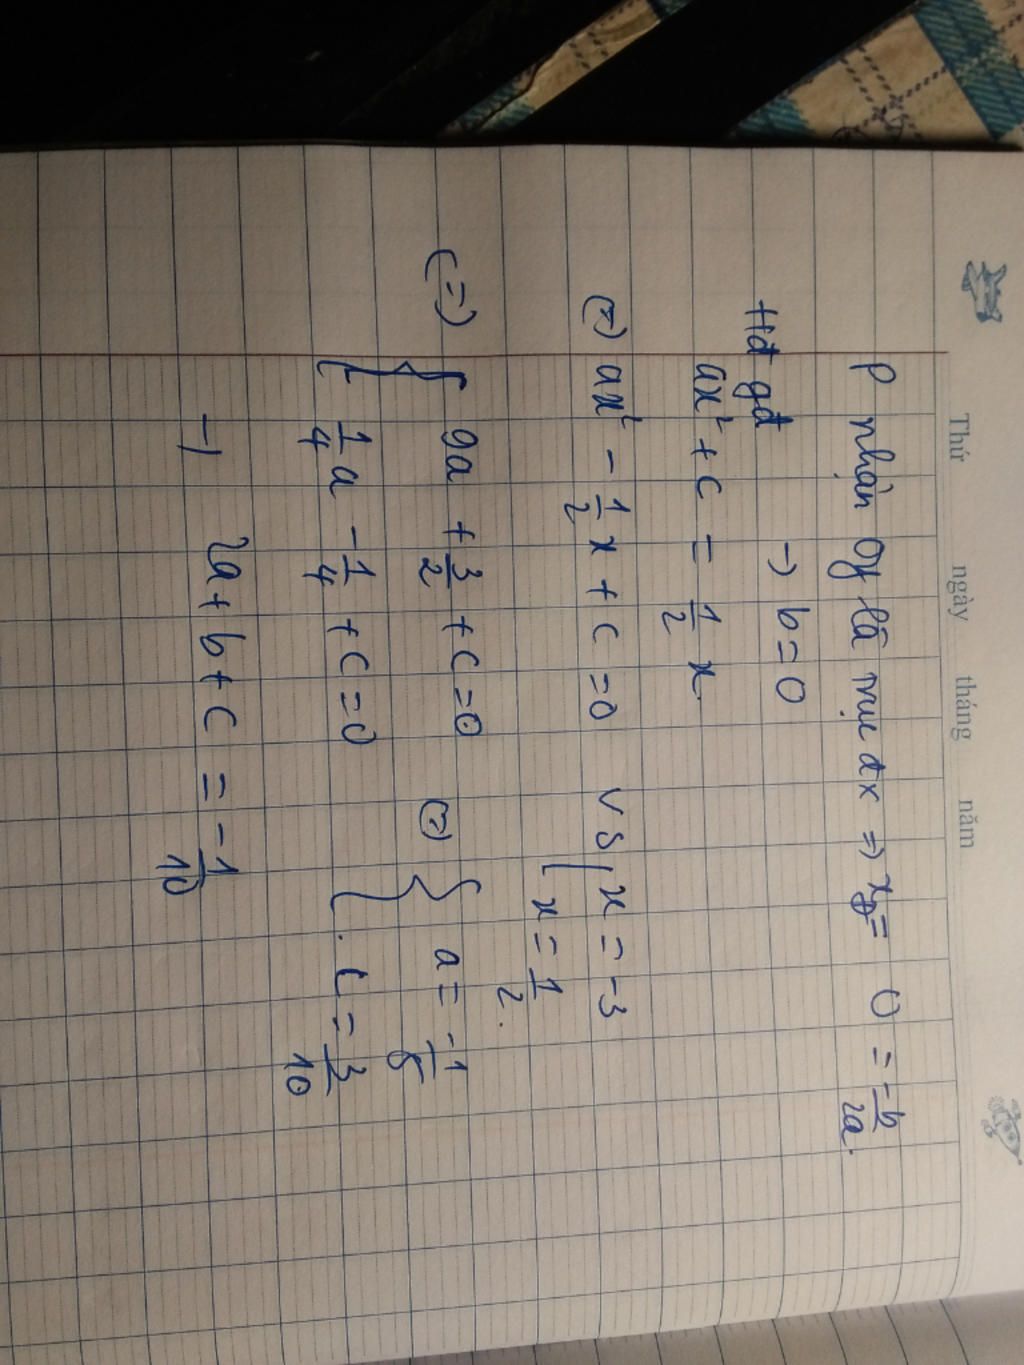 Thứ ngày tháng năm
P nhận Oy là trục đx => x = 0 = -b/2a.
-> b = 0
Hđ gđ
ax² + c = 1/2 x.
(=) ax² - 1/2 x + c = 0 VS [ x = -3
x = 1/2.
(=) { 9a + 3/2 + c = 0 (=) { a = -1/5
1/4 a - 1/4 + c = 0 . c = 3/10
-) 2a + b + c = -1/10